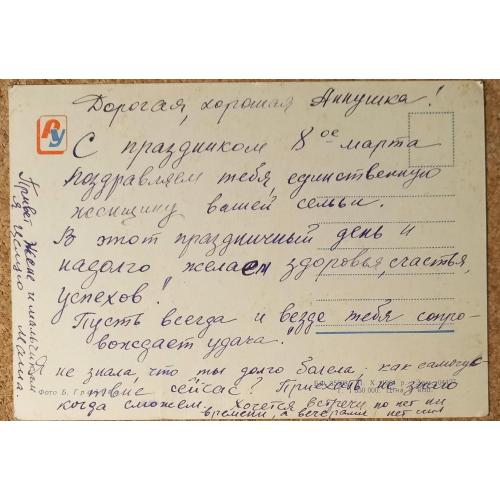 Дорогая, хорошая Аннушка!
С праздником 8ое марта
поздравляем тебя, единственную
женщину вашей семьи.
В этот праздничный день и
надолго желаем здоровья, счастья,
успехов!
Пусть всегда и везде тебя сопро-
вождает удача.
Я не знала, что ты долго болела, как самочув-
ствие сейчас? Приехать, не знаю
когда сможем. Хочется встречи, но нет ни
времени, а вечерами нет сил
Привет Жене и мальчикам
Я целую Мама.
Фото Б.